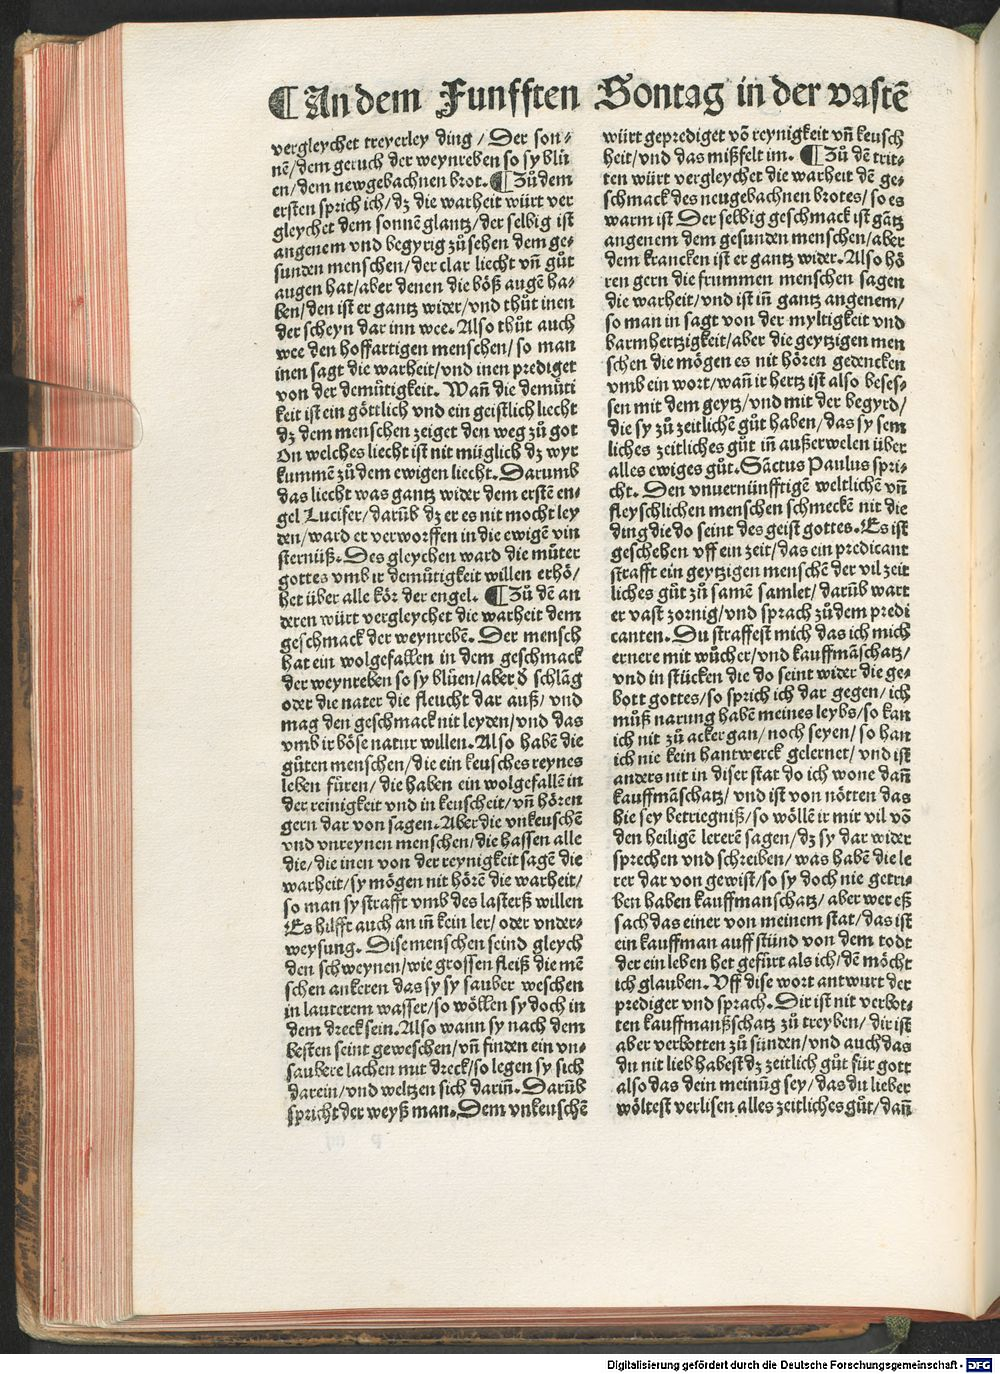 ¶ An dem Funfften Sontag in der vastē
vergleychet treyerley ding / Der son⸗
nē / dem geruch der weynreben so sy blü
en / dem newgebachnen brot. ¶ Zů dem
ersten sprich ich / dz die warheit würt ver
gleychet dem sonnē glantz / der selbig ist
angenem vnd begyrig zů sehen dem ge⸗
sunden menschen / der clar liecht vn̄ gůt
augen hat / aber denen die böß augē ha⸗
ben / den ist er gantz wider / vnd thůt inen
der scheyn dar inn wee. Also thůt auch
wee den hoffartigen menschen / so man
inen sagt die warheit / vnd inen prediget
von der demůtigkeit. Wan̄ die demůti
keit ist ein göttlich vnd ein geistlich liecht
dz dem menschen zeiget den weg zů got
On welches liecht ist nit müglich dz wyr
kummē zů dem ewigen liecht. Darumb
das liecht was gantz wider dem erstē en⸗
gel Lucifer / darūb dz er es nit mocht ley
den / ward er verworffen in die ewigē vin
sternüß. Des gleychen ward die můter
gottes vmb ir demůtigkeit willen erhö /
het über alle kör der engel. ¶ Zů dē an
deren würt vergleychet die warheit dem
geschmack der weynrebē. Der mensch
hat ein wolgefallen in dem geschmack
der weynreben so sy blüen / aber d̄ schlāg
oder die nater die fleucht dar auß / vnd
mag den geschmack nit leyden / vnd das
vmb ir böse natur willen. Also habē die
gůten menschen / die ein keusches reynes
leben fůren / die haben ein wolgefallē in
der reinigkeit vnd in keuscheit / vn̄ hören
gern dar von sagen. Aber die vnkeuschē
vnd vnreynen menschen / die hassen alle
die / die inen von der reynigkeit sagē die
warheit / sy mögen nit hörē die warheit /
so man sy strafft vmb des lasterß willen
Es hilfft auch an im̄ kein ler / oder vnder⸗
weysung. Dise menschen seind gleych
den schweynen / wie grossen fleiß die mē
schen ankeren das sy sy sauber weschen
in lauterem wasser / so wöllen sy doch in
dem dreck sein. Also wann sy nach dem
besten seint geweschen / vn̄ finden ein vn⸗
saubere lachen mit dreck / so legen sy sich
darein / vnd weltzen sich darin̄. Darūb
spricht der weyß man. Dem vnkeuschē
würt geprediget vō reynigkeit vn̄ keusch
heit / vnd das mißfelt im. ¶ Zů dē trit⸗
ten würt vergleychet die warheit dē ge⸗
schmack des neugebachnen brotes / so es
warm ist Der selbig geschmack ist gātz
angenem dem gesunden menschen / aber
dem krancken ist er gantz wider. Also hö
ren gern die frummen menschen sagen
die warheit / vnd ist in̄ gantz angenem /
so man in sagt von der myltigkeit vnd
barmhertzigkeit / aber die geytzigen men
schen die mögen es nit hören gedencken
vmb ein wort / wan̄ ir hertz ist also beses⸗
sen mit dem geytz / vnd mit der begyrd /
die sy zů zeitlichē gůt haben / das sy sem
liches zeitliches gůt in̄ außerwelen über
alles ewiges gůt. Sāctus Paulus spri⸗
cht. Den vnuernünfftigē weltlichē vn̄
fleyschlichen menschen schmeckē nit die
ding die do seint des geist gottes. Es ist
geschehen vff ein zeit / das ein predicant
strafft ein geytzigen menschē der vil zeit
liches gůt zů samē samlet / darūb wart
er vast zornig / vnd sprach zů dem predi
canten. Du straffest mich das ich mich
ernere mit wůcher / vnd kauffmāschatz /
vnd in stücken die do seint wider die ge⸗
bott gottes / so sprich ich dar gegen / ich
můß narung habē meines leybs / so kan
ich nit zů acker gan / noch seyen / so han
ich nie kein hantwerck gelernet / vnd ist
anders nit in diser stat do ich wone dan̄
kauffmāschatz / vnd ist von nötten das
hie sey betriegniß / so wöllē ir mir vil vō
den heiligē lererē sagen / dz sy dar wider
sprechen vnd schreiben / was habē die le
rer dar von gewist / so sy doch nie getri⸗
ben haben kauffmanschatz / aber wer eß
sach das einer von meinem stat / das ist
ein kauffman auff stünd von dem todt
der ein leben het gefürt als ich / dē möcht
ich glauben. Vff dise wort antwurt der
prediger vnd sprach. Dir ist nit verbot⸗
ten kauffmanßschatz zů treyben / dir ist
aber verbotten zů sünden / vnd auch das
du nit lieb habest dz zeitlich gůt für gott
also das dein meinūg sey / das du lieber
wöltest verlisen alles zeitliches gůt / dan̄
Digitalisierung gefördert durch die Deutsche Forschungsgemeinschaft - DFG